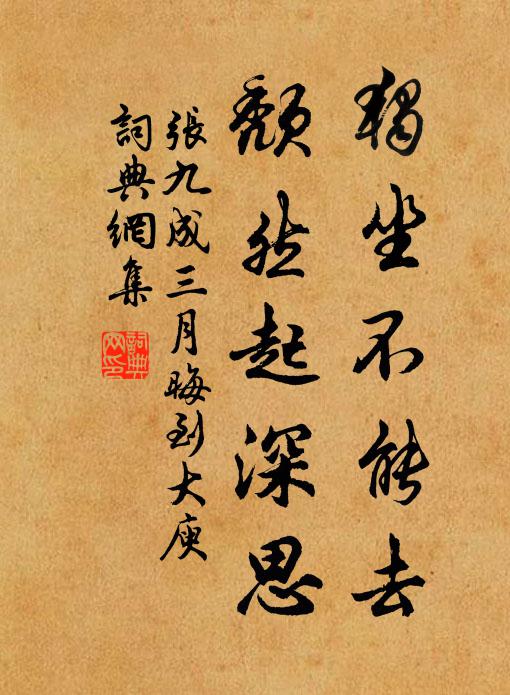 獨坐不能去
頹然起深思
張九成三月晦到大庾
詞典網集
詞典
网印